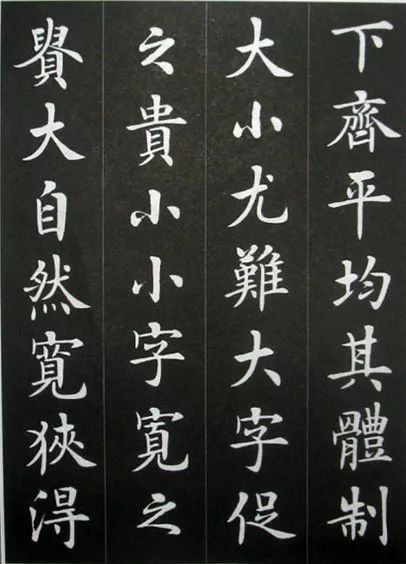 下齊平均其體制
大小尤難大字促
之貴小小字寬之
貴大自然寬狹得